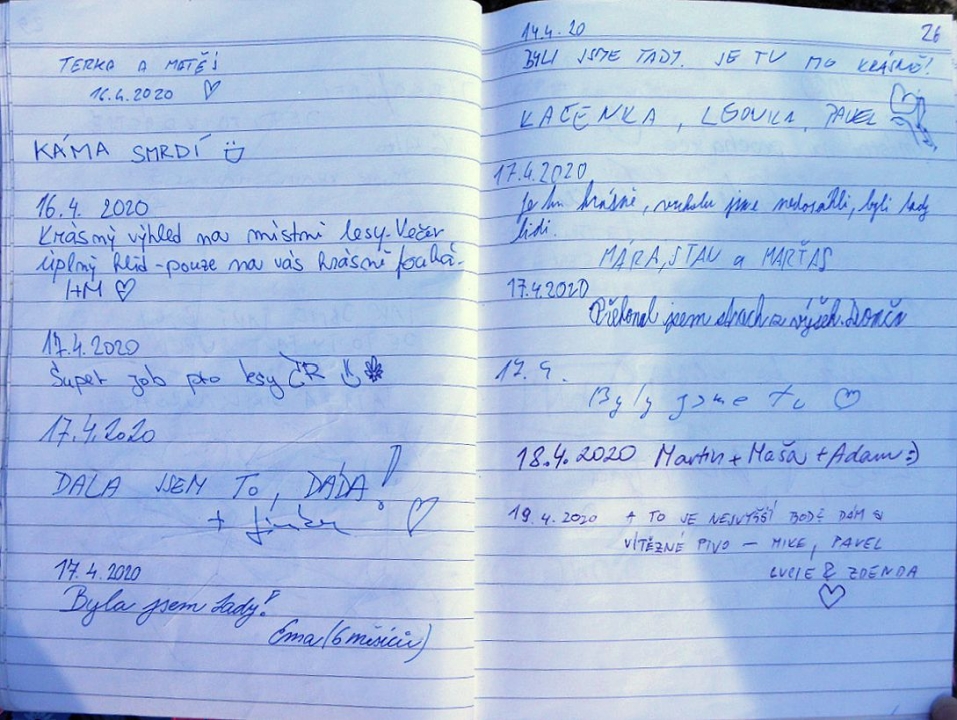 TERKA A MATĚJ
16.4.2020 ♡
KÁMA SMRDÍ
16.4. 2020
Krásný výhled na místní lesy. Večer
úplný klid - pouze na vás krásně fouká.
I+M ♡
17.4.2020
Super job pro lesy ČR
17.4.2020
DALA JSEM TO, DÁĎA!
+
17.4.2020
Byla jsem tady!
Ema (6 měsíců)
26
14.4.20
BYLI JSME TADY. JE TU MO KRÁSNĚ!
KAČENKA, PAVEL
17.4.2020
Je tu krásně, vrcholu jsme nedosáhli, byli tady
lidi.
MÁRA, STAU a MARŤAS
17.4.2020
Překonal jsem strach z výšek.
17.4.
Byly jsme tu ♡
18.4.2020 Martin + Maša + Adam :)
19.4.2020 A TO JE NEJVYŠŠÍ BODĚ DÁM
VÍTĚZNÉ PIVO - MIKE, PAVEL
LUCIE & ZDENDA
♡